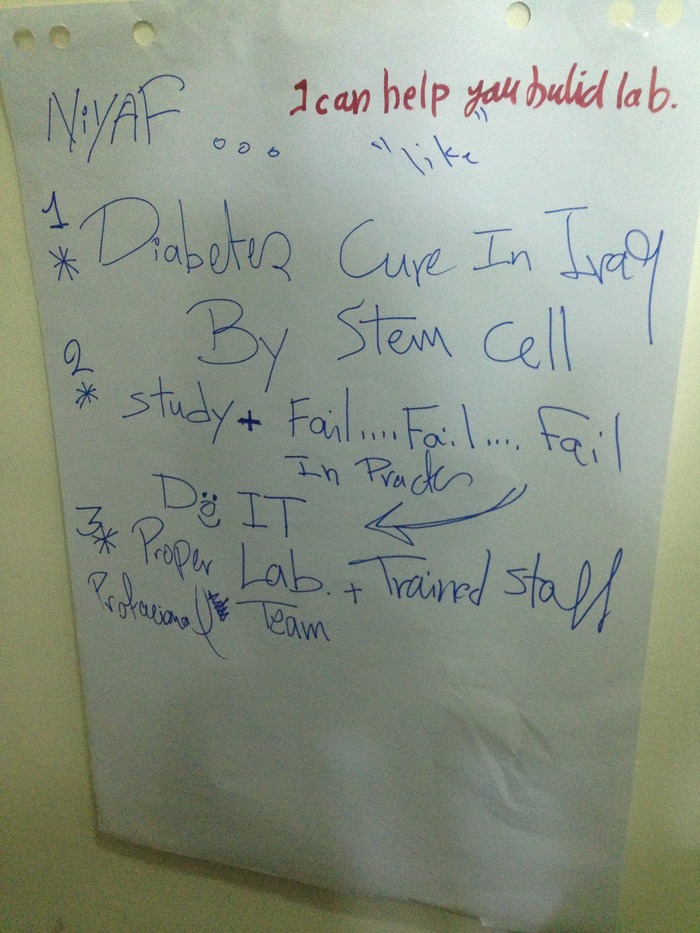 NiYAF ...
I can help you bulid lab.
"like"
1
* Diabetes Cure In Iraq
By Stem Cell
2
* study + Fail....Fail.... Fail
In Practes
Do IT
3
* Proper Lab. + Trained Staff
Profasional Team